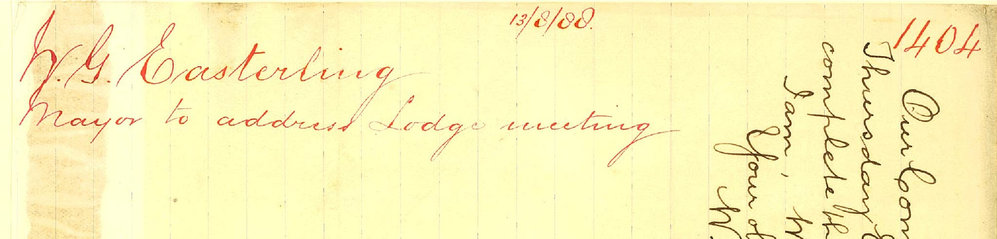 13/8/88.
1404
W. G. Easterling
Mayor to address Lodge meeting
Our Com
Thursday E
complete th
I am, W
Your ob
W.